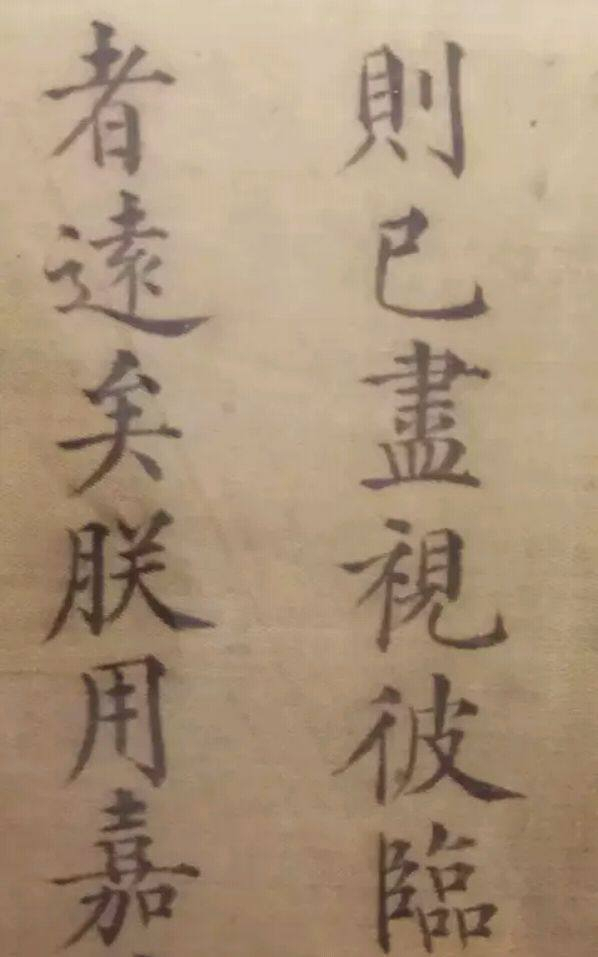 則已盡視彼臨
者遠矣朕用嘉